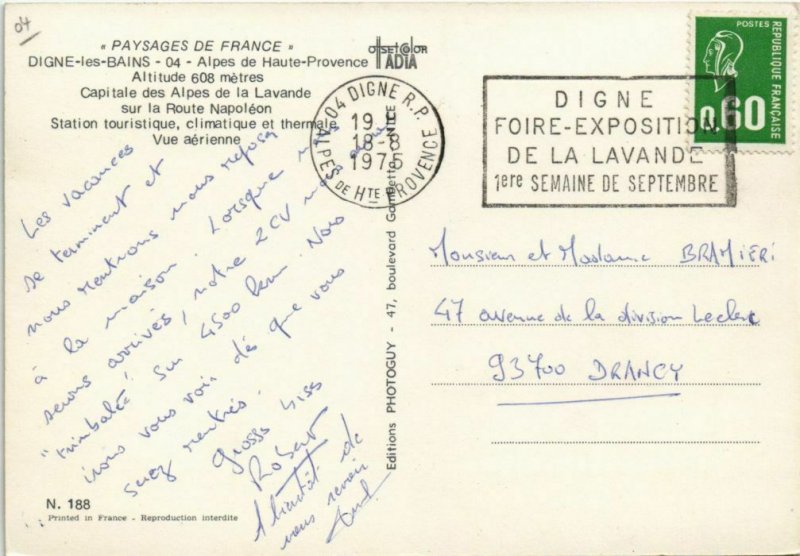 04
« PAYSAGES DE FRANCE »
DIGNE-les-BAINS - 04 - Alpes de Haute-Provence
Altitude 608 mètres
Capitale des Alpes de la Lavande
sur la Route Napoléon
Station touristique, climatique et thermale
Vue aérienne
offset color
ADIA
04 DIGNE R.P.
19 H
18-8
1975
ALPES DE Hte PROVENCE
DIGNE
FOIRE-EXPOSITION
DE LA LAVANDE
1ere SEMAINE DE SEPTEMBRE
POSTES
REPUBLIQUE FRANÇAISE
0,60
Les vacances
se terminent et
nous rentrons nous reposer
à la maison. Lorsque nous
serons arrivés, notre 2CV nous aura
"trimbalé" sur 4500 km. Nous
irons vous voir dès que vous
serez rentrés.
Grosses bises
Robert
A bientôt de
vous revoir
Editions PHOTOGUY - 47, boulevard Gambetta - NICE
Monsieur et Madame BRAMIERI
47 avenue de la division Leclerc
93700 DRANCY
N. 188
Printed in France - Reproduction interdite